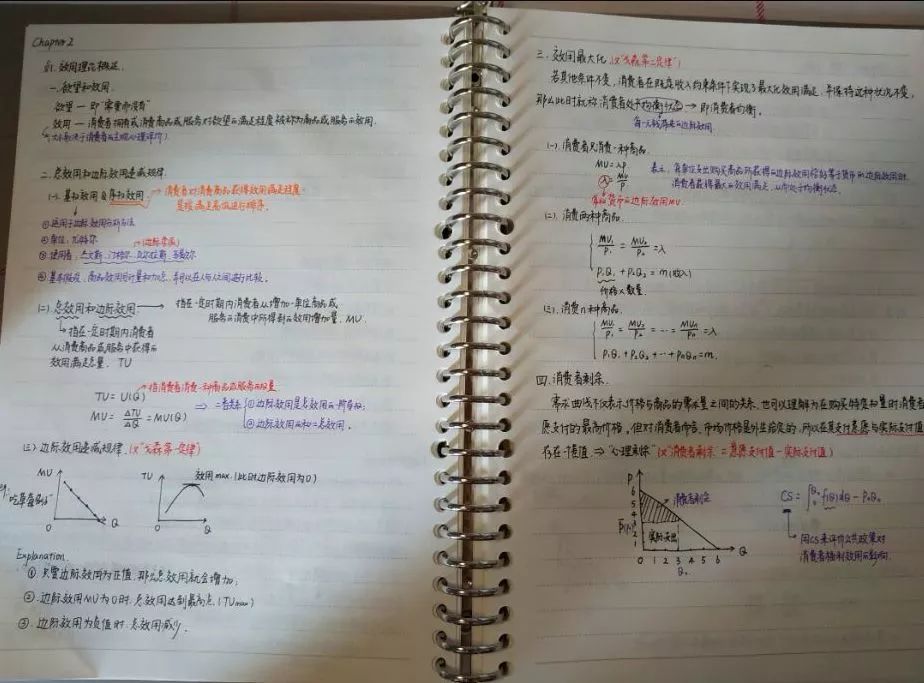 Chapter 2
§1. 效用理论概述.
一. 欲望和效用.
欲望 — 即"需要而没有"
效用 — 消费者拥有或消费商品或服务对欲望的满足程度被称为商品或服务的效用.
(大小取决于消费者的主观心理评价)
二. 总效用和边际效用递减规律.
(一). 基数效用 & 序数效用. → 消费者对消费商品获得效用满足程度
是按满足高低进行排序.
①适用于边际效用分析方法
②单位: 尤特尔
(边际学派)
③使用者: 杰文斯、门格尔、瓦尔拉斯、马歇尔
④基本假设: 商品效用可计量和加总, 并可以在人与人之间进行比较.
(二). 总效用和边际效用 → 指在一定时期内消费者从增加一单位商品或
服务的消费中所得到的效用增加量. MU.
指在一定时期内消费者
从消费商品或服务中获得的
效用满足总量. TU
指消费者消费一种商品或服务的数量
TU = U(Q)
MU = ΔTU/ΔQ = MU(Q) ⇒ 二者关系 ①边际效用是总效用的一阶导数;
②边际效用的和=总效用.
(三) 边际效用递减规律. (又"戈森第一定律")
MU
Q
0
TU
效用max. (此时边际效用为0)
Q
0
Explanation.
①. 只要边际效用为正值, 那么总效用就会增加;
②. 边际效用MU为0时. 总效用达到最高点. (TUmax)
③. 边际效用为负值时. 总效用减少.
三. 效用最大化 (又"戈森第二定律")
若其他条件不变, 消费者在既定收入约束条件下实现了最大化效用满足, 并保持这种状况不变,
那么此时就称消费者处于均衡状态 → 即消费者均衡.
每一元钱带来的边际效用
(一). 消费者只消费一种商品.
MU = λP
λ = MU/P
单位货币的边际效用MU.
表示, 每单位支出购买商品所获得的边际效用恰好等于货币的边际效用时.
消费者获得最大的效用满足, 从而处于均衡状态.
(二). 消费两种商品.
MU₁/P₁ = MU₂/P₂ = λ
P₁Q₁ + P₂Q₂ = m (收入)
价格×数量.
(三). 消费n种商品.
MU₁/P₁ = MU₂/P₂ = ... = MUn/Pn = λ
P₁Q₁ + P₂Q₂ + ... + PnQn = m.
四. 消费者剩余.
需求曲线不仅表示价格与商品的需求量之间的关系, 也可以理解为在购买特定数量时消费者
愿支付的最高价格. 但对消费者而言, 市场价格是外生给定的, 所以在其支付意愿与实际支付值
存在一定值. ⇒ "心理剩余" (又"消费者剩余" = 意愿支付值 - 实际支付值)
P
6
5
4
3
2
1
消费者剩余
实际支出
0 1 2 3 4 5 6 Q
Q₀
CS = ∫₀^Q₀ f(Q)dQ - P₀Q₀
用CS来评价公共政策对
消费者福利效用的影响.